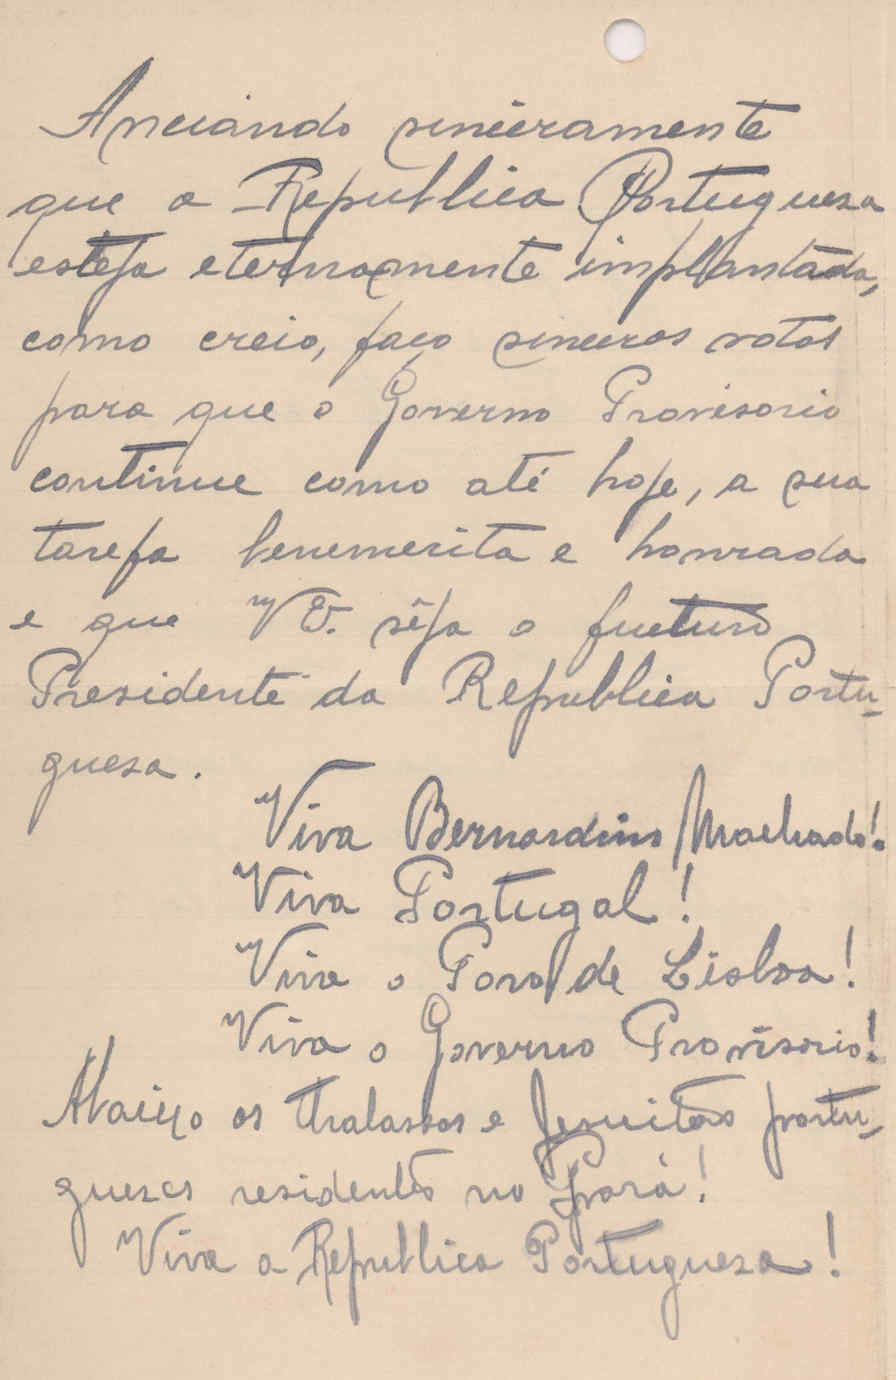 Anciando sinceramente
que a Republica Portugueza
esteja eternamente implantada,
como creio, faço sinceros votos
para que o Governo Provisorio
continue como até hoje, a sua
tarefa benemerita e honrada
e que V E. sêja o futuro
Presidente da Republica Portu-
gueza.
Viva Bernardino Machado!
Viva Portugal!
Viva o Povo de Lisboa!
Viva o Governo Provisorio!
Abaixo os thalassas e Jesuitas portu-
guezes residentes no Pará!
Viva a Republica Portugueza!